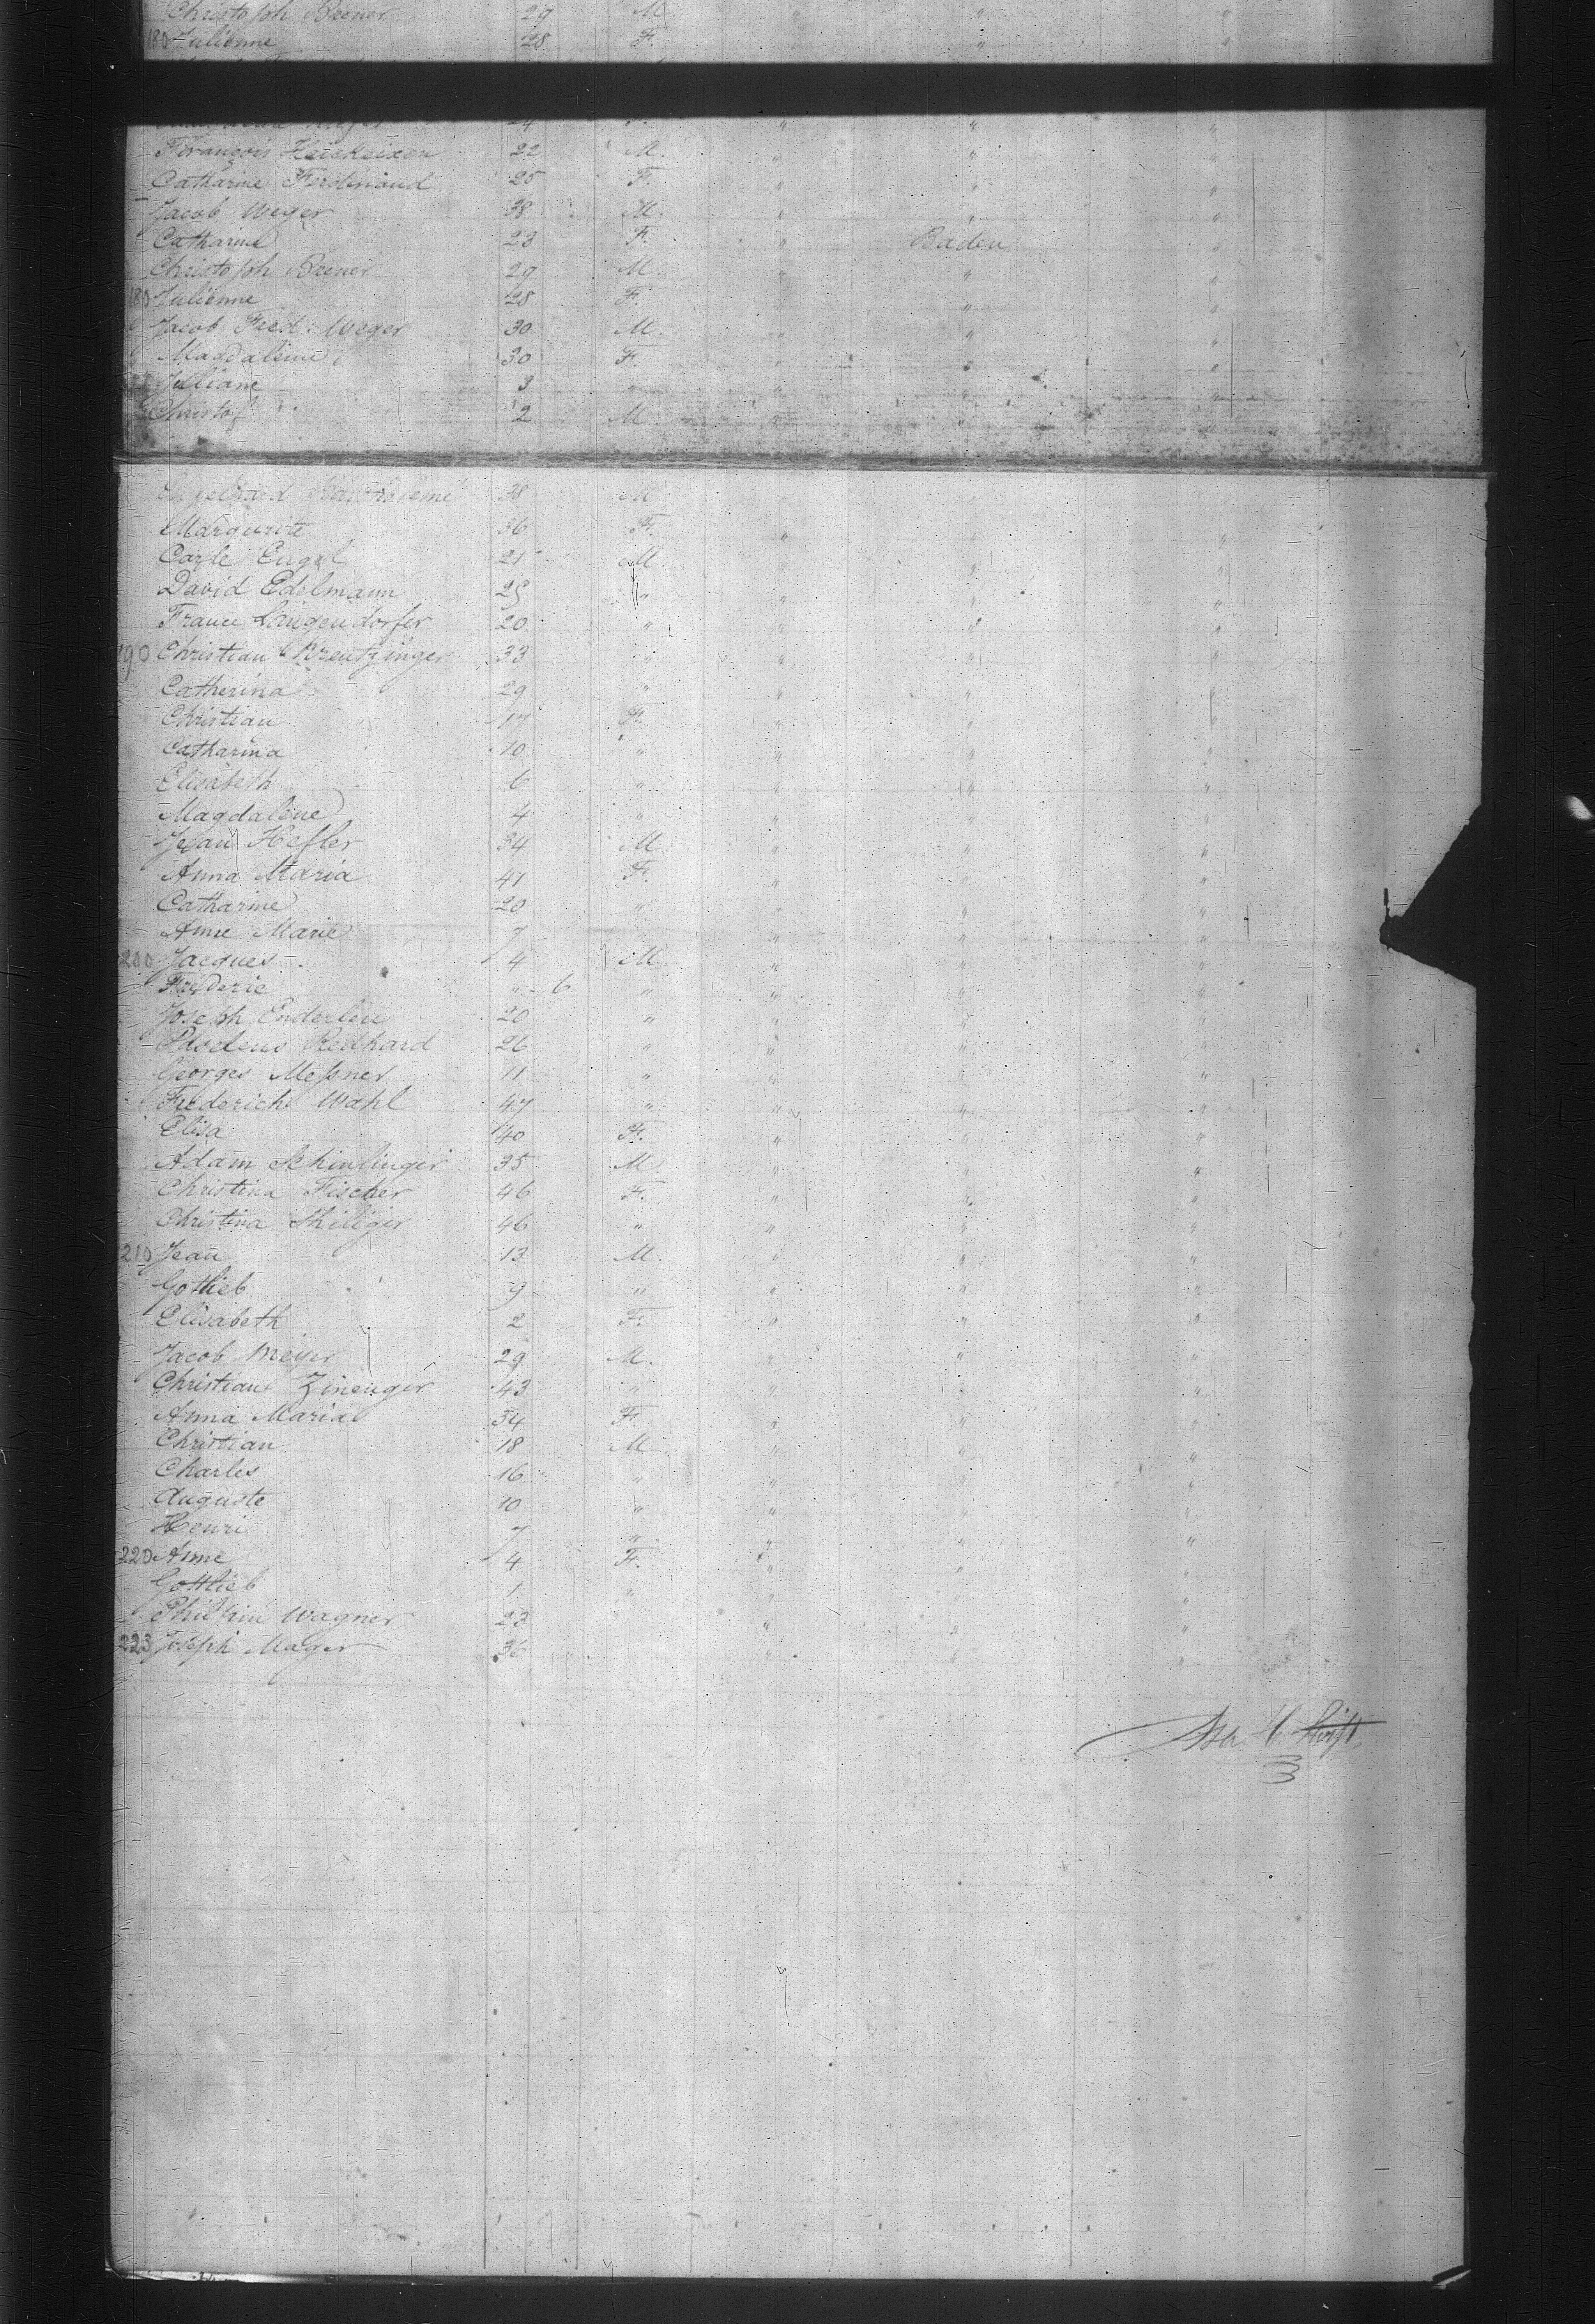 Christoph Brener 29 M " " "
180 Julienne 28 F. " "
24 " " "
François 22 M. " " "
Catharine Ferdinand 25 F. " " "
Jacob Weger 38 M. " " "
Catharine 23 F. " Baden "
Christoph Brener 29 M. " " "
180 Julienne 28 F. " " "
Jacob Fred: Weger 30 M. " " "
Magdalene 30 F. " " "
Julliane 3 " " " "
Christof 2 M. " " "
38 M
Margurite 36 F. " " "
Carle Engel 25 M. " " "
David Edelmann 25 " " " "
France Langendorfer 20 " " " "
190 Christian Kreutzinger 33 " " " "
Catherina 29 " " " "
Christian 17 F. " " "
Catharina 10 " " " "
Elisabeth 6 " " " "
Magdaléne 4 " " " "
Jean Hefler 34 M. " " "
Anna Maria 41 F. " " "
Catharine 20 " " " "
Anne Marie 7 " " " "
200 Jacques 4 M. " " "
Fréderic " 6 " " " "
Joseph Enderlen 20 " " " "
Redhard 26 " " " "
Georges Meßner 11 " " " "
Frederich Wahl 47 " " " "
Elisa 40 F. " " "
Adam 35 M. " " "
Christina Fischer 46 F. " " "
Christina 46 " " " "
210 Jean 13 M. " " "
Gotlieb 9 " " " "
Elisabeth 2 F. " " "
Jacob Meyer 29 M. " " "
Christian 43 " " " "
Anna Maria 34 F. " " "
Christian 18 M. " " "
Charles 16 " " " "
Auguste 10 " " " "
Henri 7 " " " "
220 Anne 4 F. " " "
Gottlieb 1 " " " "
Wagner 23 " " " "
223 Joseph Mager 36 " " "
Swift